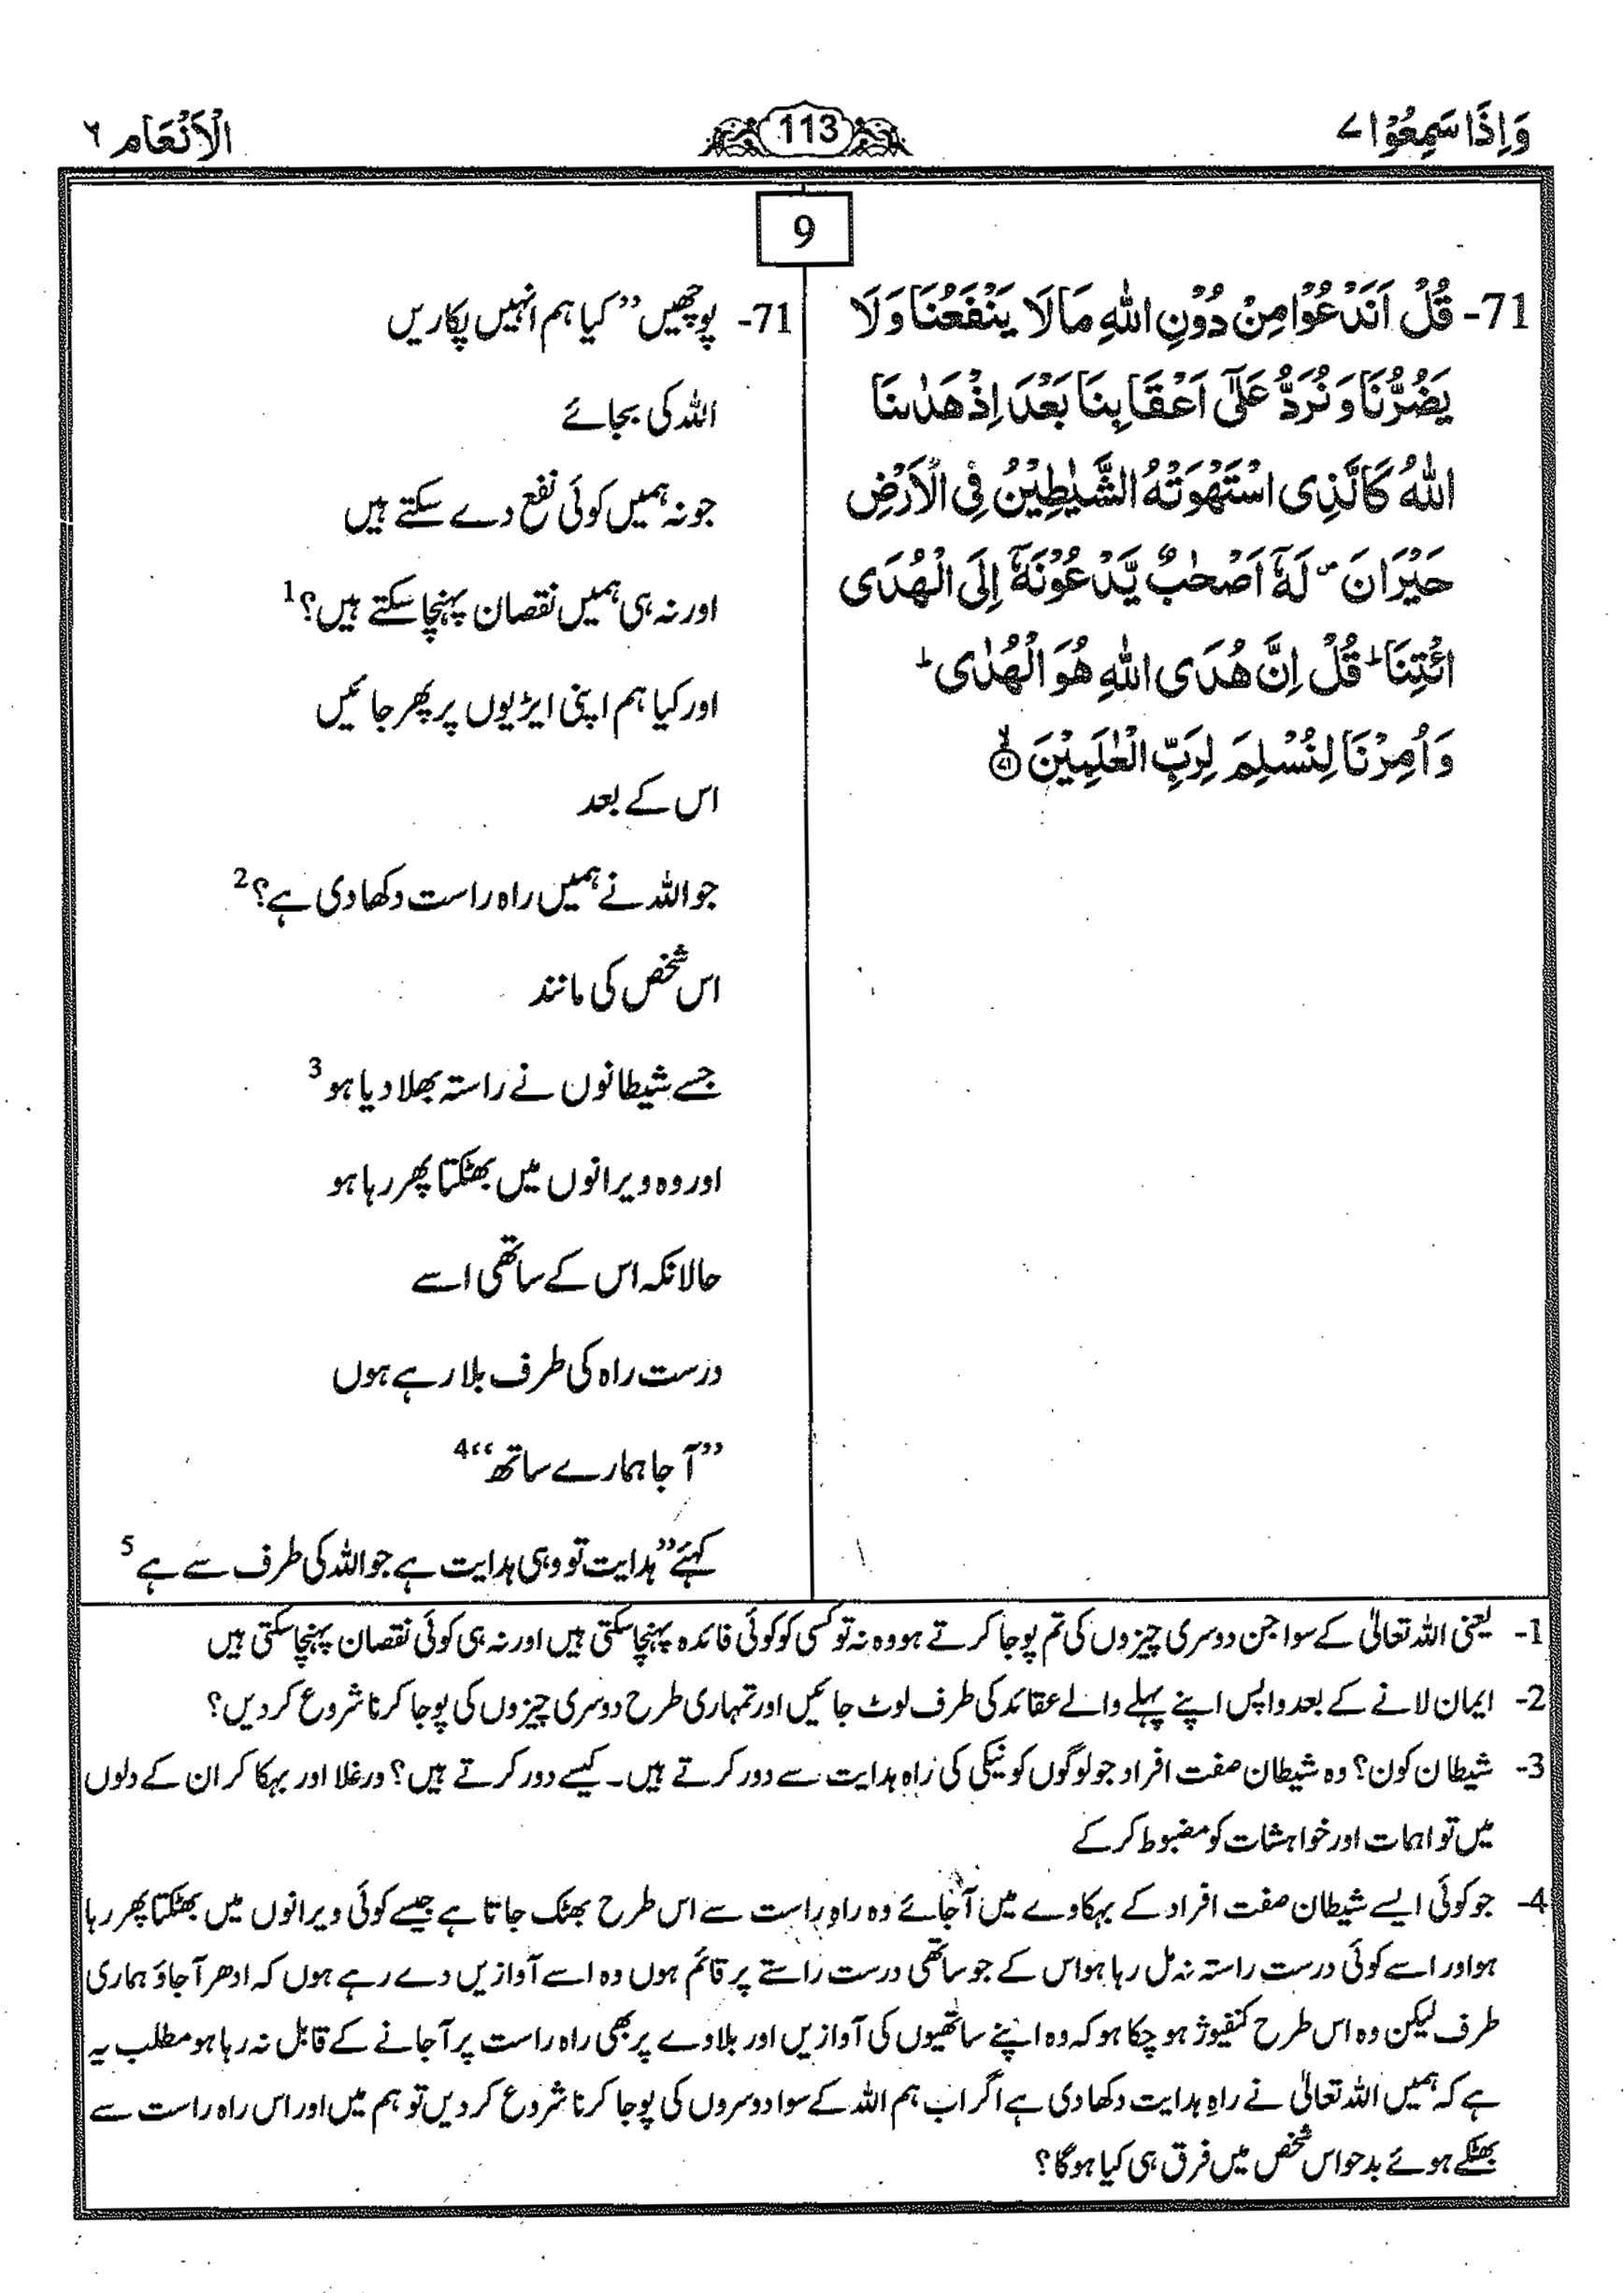 وَاِذَا سَمِعُوْا ۷
113
الْاَنْعَام ۶
9
71- قُلْ اَنَدْعُوْا مِنْ دُوْنِ اللّٰهِ مَا لَا يَنْفَعُنَا وَلَا
يَضُرُّنَا وَنُرَدُّ عَلٰٓى اَعْقَابِنَا بَعْدَ اِذْ هَدٰىنَا
اللّٰهُ كَالَّذِى اسْتَهْوَتْهُ الشَّيٰطِيْنُ فِى الْاَرْضِ
حَيْرَانَ ۖ لَهٗٓ اَصْحٰبٌ يَّدْعُوْنَهٗٓ اِلَى الْهُدَى
ائْتِنَا ؕ قُلْ اِنَّ هُدَى اللّٰهِ هُوَ الْهُدٰى ؕ
وَاُمِرْنَا لِنُسْلِمَ لِرَبِّ الْعٰلَمِيْنَ ۙ ﴿۷۱﴾
71- پوچھیں ’’کیا ہم انہیں پکاریں
اللہ کی بجائے
جو نہ ہمیں کوئی نفع دے سکتے ہیں
اور نہ ہی ہمیں نقصان پہنچا سکتے ہیں؟ 1
اور کیا ہم اپنی ایڑیوں پر پھر جائیں
اس کے بعد
جو اللہ نے ہمیں راہ راست دکھا دی ہے؟ 2
اس شخص کی مانند
جسے شیطانوں نے راستہ بھلا دیا ہو 3
اور وہ ویرانوں میں بھٹکتا پھر رہا ہو
حالانکہ اس کے ساتھی اسے
درست راہ کی طرف بلا رہے ہوں
’’آ جا ہمارے ساتھ‘‘ 4
کہئے ’’ہدایت تو وہی ہدایت ہے جو اللہ کی طرف سے ہے 5
1- یعنی اللہ تعالیٰ کے سوا جن دوسری چیزوں کی تم پوجا کرتے ہو وہ نہ تو کسی کو کوئی فائدہ پہنچا سکتی ہیں اور نہ ہی کوئی نقصان پہنچا سکتی ہیں
2- ایمان لانے کے بعد واپس اپنے پہلے والے عقائد کی طرف لوٹ جائیں اور تمہاری طرح دوسری چیزوں کی پوجا کرنا شروع کر دیں؟
3- شیطان کون؟ وہ شیطان صفت افراد جو لوگوں کو نیکی کی راہ ہدایت سے دور کرتے ہیں۔ کیسے دور کرتے ہیں؟ ورغلا اور بہکا کر ان کے دلوں
میں تواہمات اور خواہشات کو مضبوط کر کے
4- جو کوئی ایسے شیطان صفت افراد کے بہکاوے میں آ جائے وہ راہِ راست سے اس طرح بھٹک جاتا ہے جیسے کوئی ویرانوں میں بھٹکتا پھر رہا
ہو اور اسے کوئی درست راستہ نہ مل رہا ہو اس کے جو ساتھی درست راستے پر قائم ہوں وہ اسے آوازیں دے رہے ہوں کہ ادھر آ جاؤ ہماری
طرف لیکن وہ اس طرح کنفیوژ ہو چکا ہو کہ وہ اپنے ساتھیوں کی آوازیں اور بلاوے پر بھی راہ راست پر آ جانے کے قابل نہ رہا ہو مطلب یہ
ہے کہ ہمیں اللہ تعالیٰ نے راہِ ہدایت دکھا دی ہے اگر اب ہم اللہ کے سوا دوسروں کی پوجا کرنا شروع کر دیں تو ہم میں اور اس راہ راست سے
بھٹکے ہوئے بدحواس شخص میں فرق ہی کیا ہوگا؟